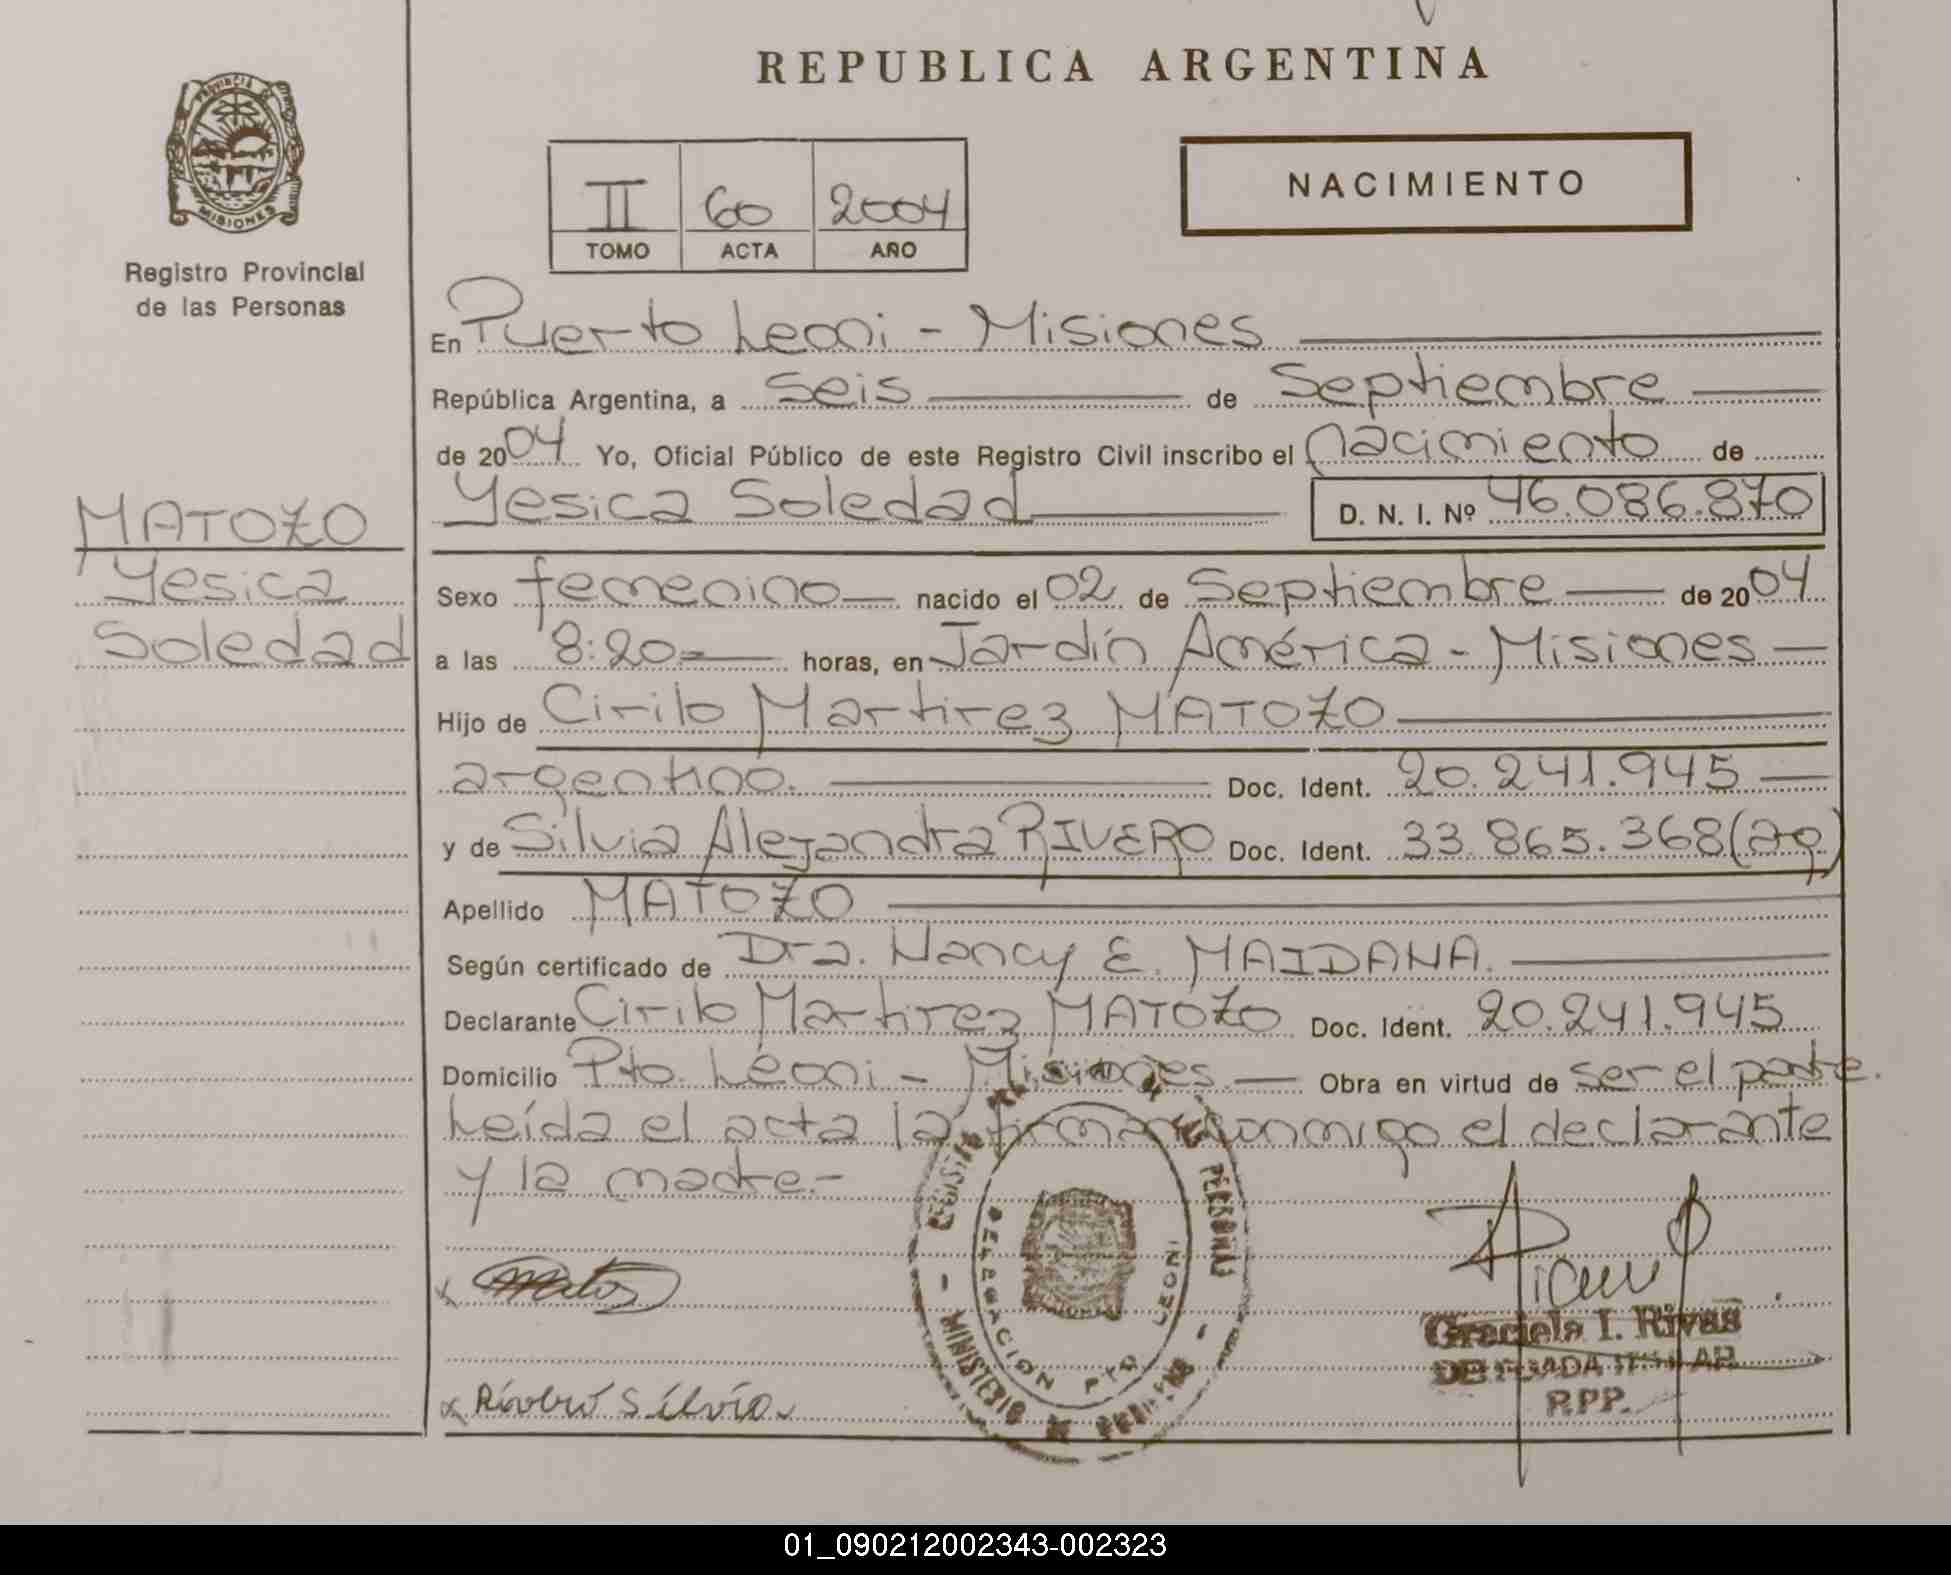 REPUBLICA ARGENTINA
PROVINCIA DE
MISIONES
Registro Provincial
de las Personas
II 60 2004
TOMO ACTA AÑO
NACIMIENTO
En Puerto Leoni - Misiones
República Argentina, a seis de Septiembre
de 2004 Yo, Oficial Público de este Registro Civil inscribo el nacimiento de
Yesica Soledad D. N. I. Nº 46.086.870
MATOZO
Yesica
Soledad
Sexo femenino nacido el 02 de Septiembre de 2004
a las 8:20 horas, en Jardín América - Misiones
Hijo de Cirilo Martirez MATOZO
argentino. Doc. Ident. 20.241.945
y de Silvia Alejandra RIVERO Doc. Ident. 33.865.368 (ag)
Apellido MATOZO
Según certificado de Dra. Nancy E. MAIDANA.
Declarante Cirilo Martirez MATOZO Doc. Ident. 20.241.945
Domicilio Pto. Leoni - Misiones. Obra en virtud de ser el padre.
Leída el acta la firman conmigo el declarante
y la madre.-
REGISTRO PERSONAS
DELEGACION PTO LEONI
MINISTERIO DE
x Rivero Silvia
Graciela I. Rivas
DELEGADA TITULAR
R.P.P.
01_090212002343-002323